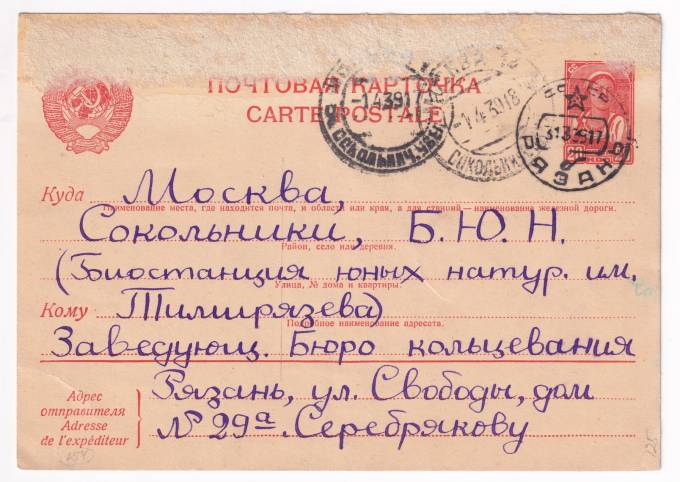 ПОЧТОВАЯ КАРТОЧКА
CARTE POSTALE
-1.4.39 17
СОКОЛЬНИЧ.
-1.4.39 18
СОКОЛЬНИ
31.3.39 17
РЯЗАНЬ
20 КОП
Куда Москва,
Наименование места, где находится почта, и области или края, а для станций — наименование железной дороги.
Сокольники, Б.Ю.Н.
Район, село или деревня.
(Биостанция юных натур. им.
Улица, № дома и квартиры.
Кому Тимирязева)
Подробное наименование адресата.
Заведующ. Бюро кольцевания
Адрес отправителя
Adresse de l'expéditeur
Рязань, ул. Свободы, дом
№ 29а. Серебрякову
125